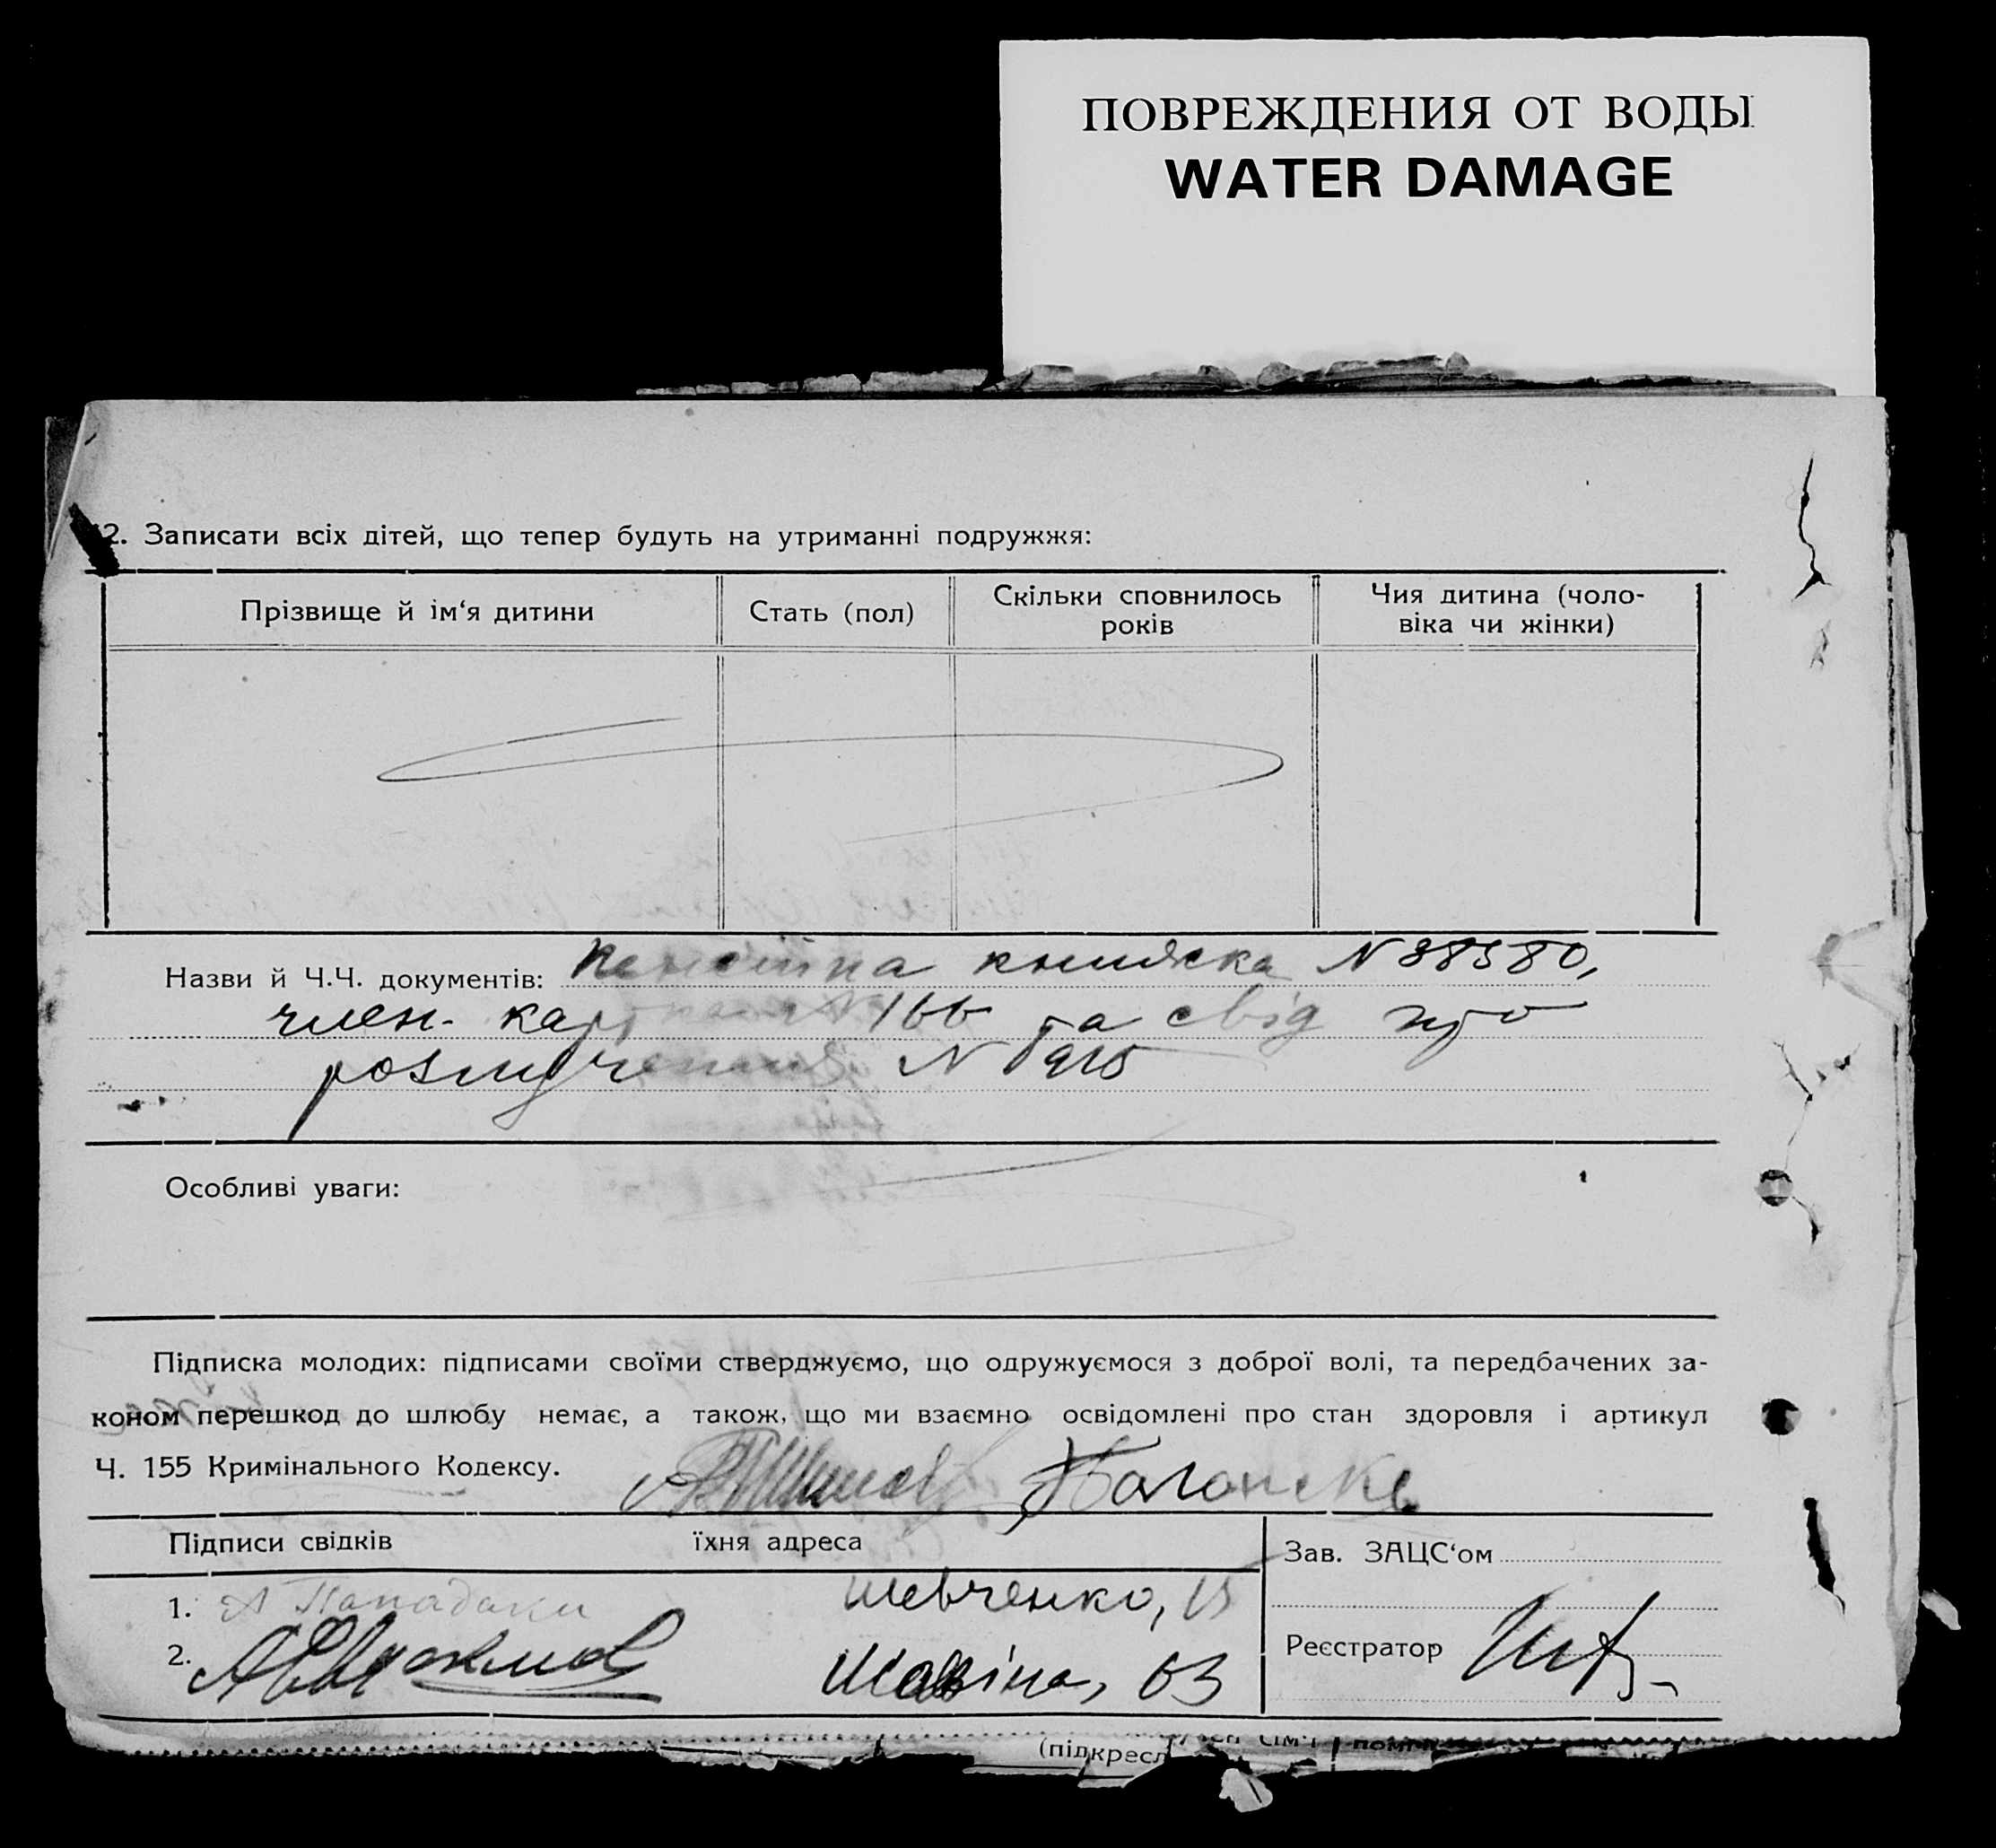 ПОВРЕЖДЕНИЯ ОТ ВОДЫ
WATER DAMAGE
2. Записати всіх дітей, що тепер будуть на утриманні подружжя:
Прізвище й ім‘я дитини
Стать (пол)
Скільки сповнилось
років
Чия дитина (чоло-
віка чи жінки)
Назви й Ч.Ч. документів: Пенсійна книжка N 88580,
член. 166 та свід про
розлучення N 1915
Особливі уваги:
Підписка молодих: підписами своїми стверджуємо, що одружуємося з доброї волі, та передбачених за-
коном перешкод до шлюбу немає, а також, що ми взаємно освідомлені про стан здоровля і артикул
Ч. 155 Кримінального Кодексу.
Підписи свідків
їхня адреса
Зав. ЗАЦС‘ом
1. А Пападаки Шевченко, 15
2. 63
Реєстратор
(підкресл